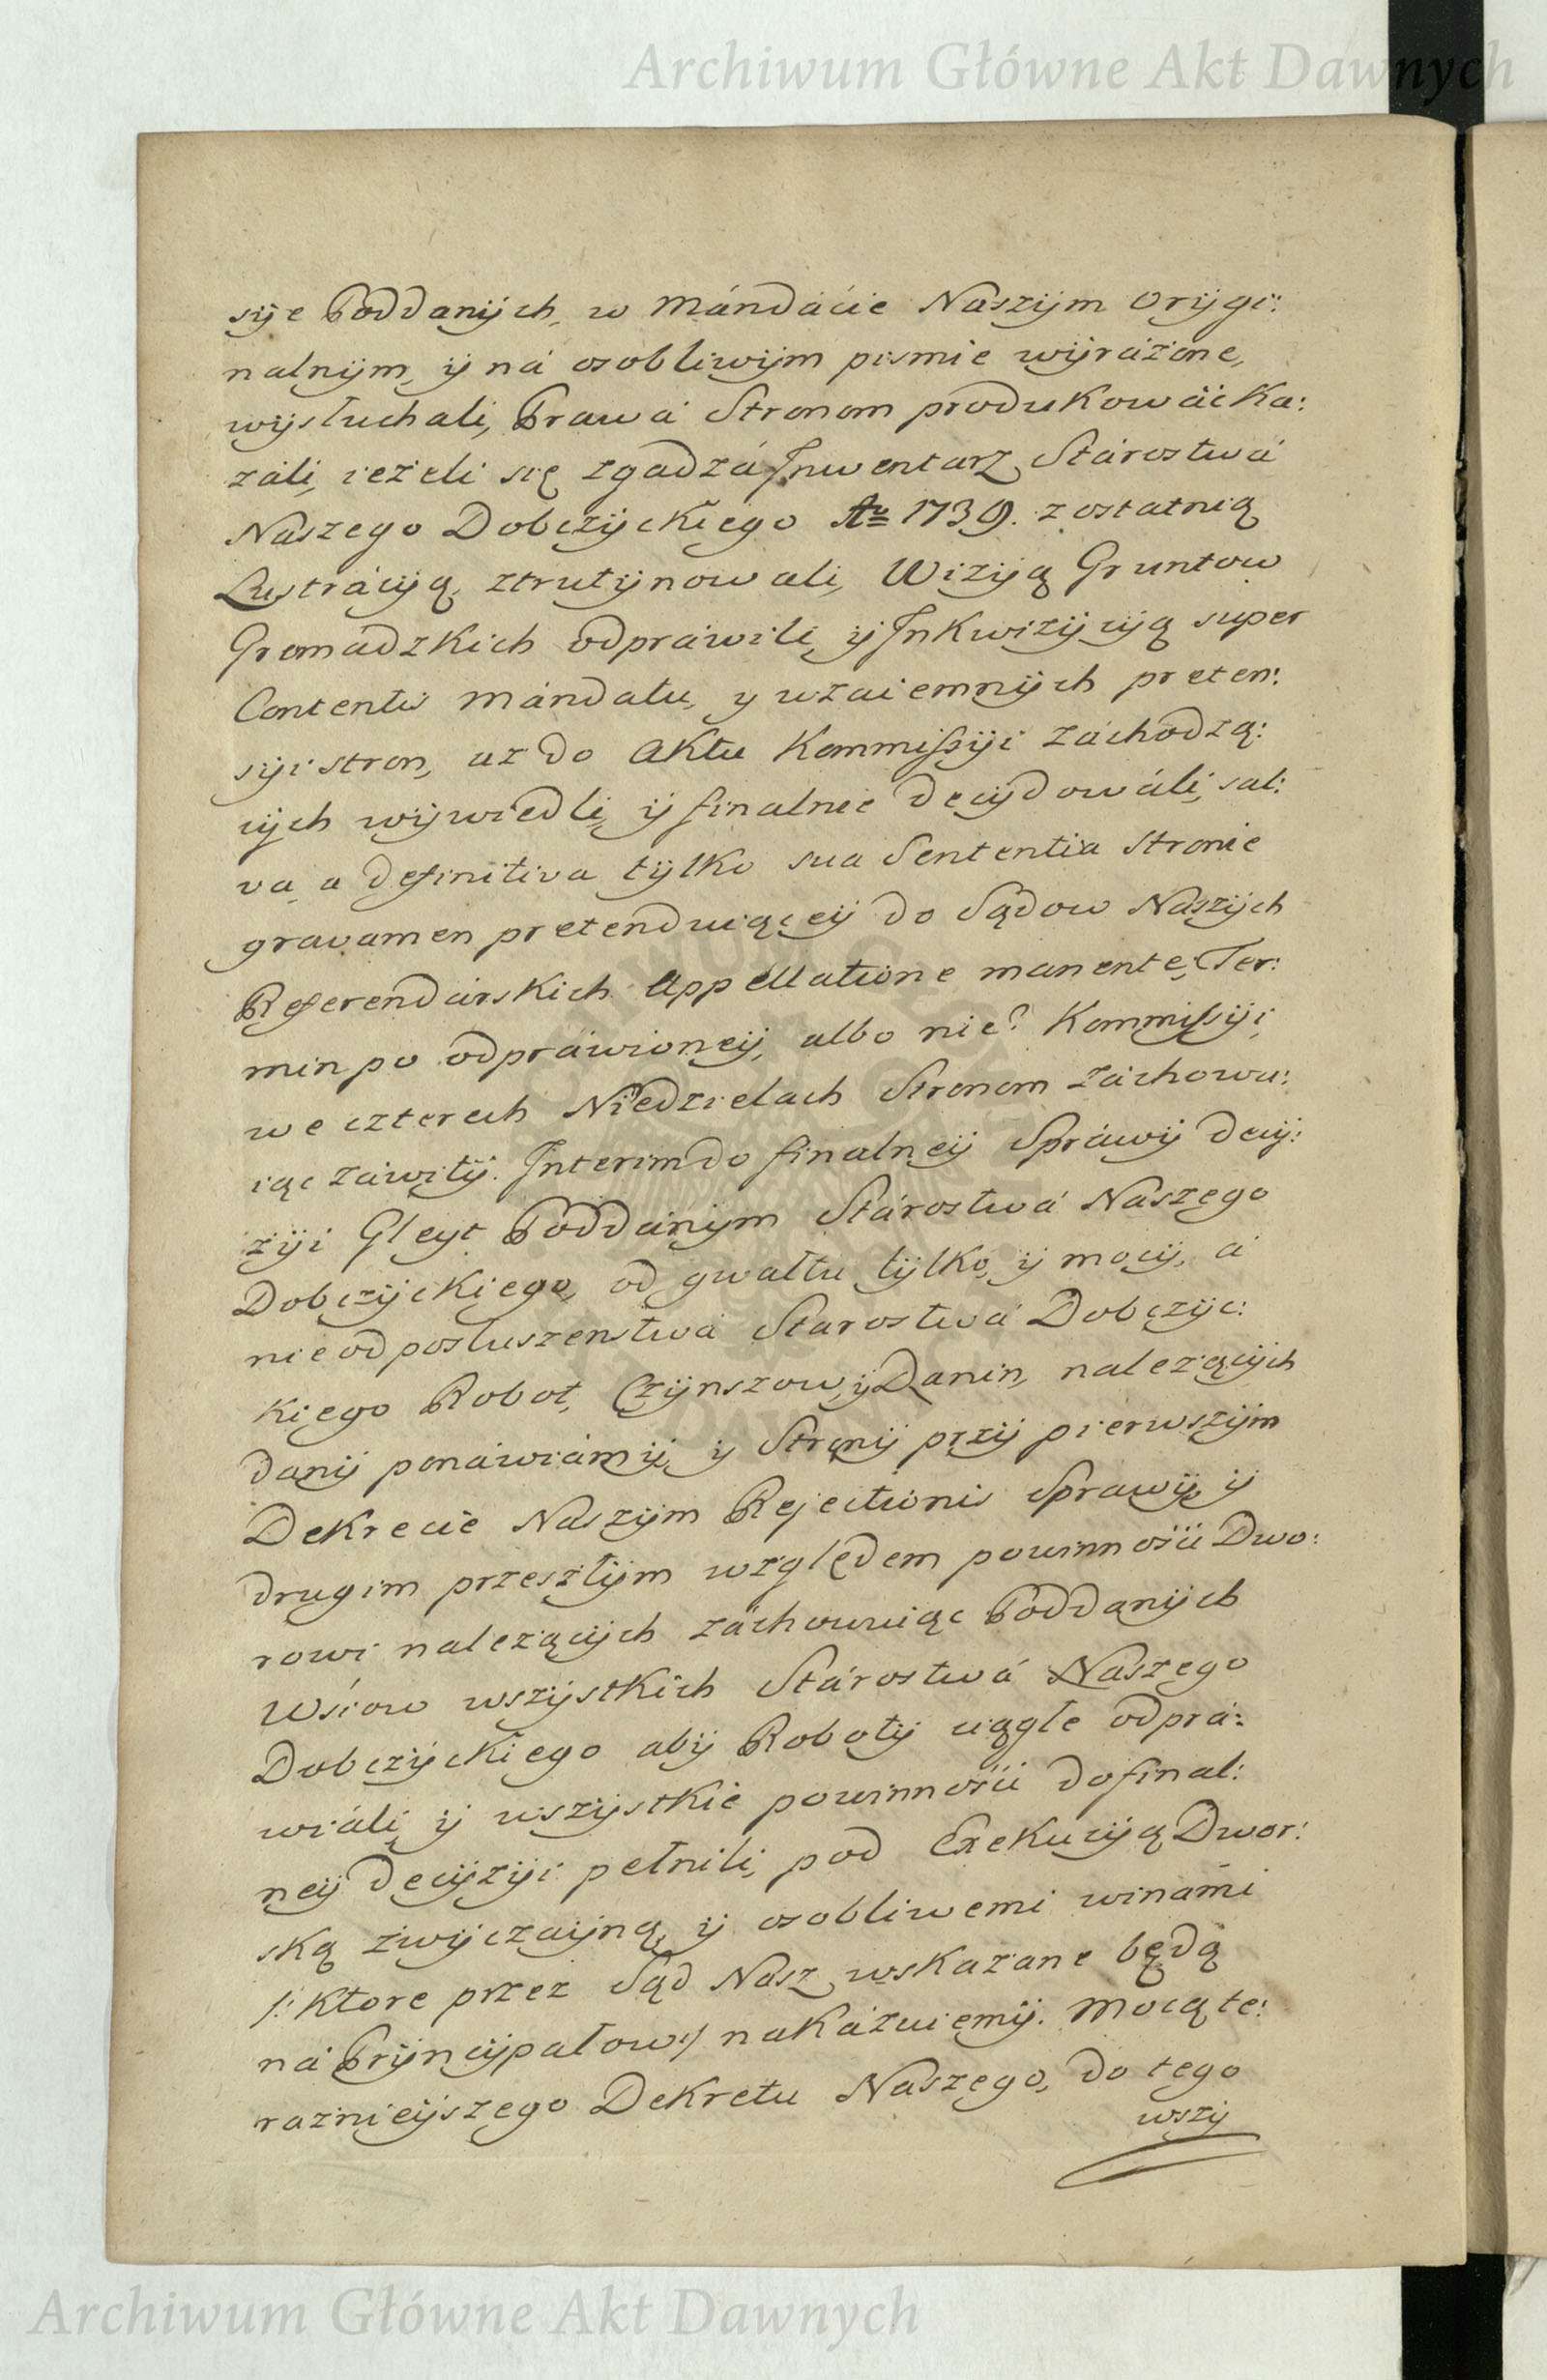 Archiwum Główne Akt Dawnych
syie Poddanych, w Mándácie Naszym Orygi:
nalnym, y ná osobliwym pismie wyrázone,
wysłuchali, Prawá Stronom produkowáć Ka:
záli, ieżeli się zgadzá Jnwentarz Stárostwá
Naszego Dobczyckiego Ao 1739. z ostatnią
Lustrácyą, ztrutynowali, Wizyą Gruntow
Gromádzkich odpráwili, y Jnkwizycyą super
Contentis Mándatu, y wzaiemnych preten:
syi stron, aż do Aktu Kommissyi záchodzą:
cych wywiedli, y finalnie decydowáli, sal:
va, a definitiva tylko sua Sententia Stronie
gravamen pretenduiącey do Sądow Naszych
Referendárskich Appellatione manente; Ter:
min po odpráwioney, albo nie? Kommissyi,
we czterech Niedzielach Stronom záchowu:
iąc záwity. Jnterim do finalney Spráwy decy:
zyi Gleyt Poddánym Stárostwá Naszego
Dobczyckiego, od gwałtu tylko, y mocy, á
nie od posłuszenstwá Starostwá Dobczyc:
kiego Robot, Czynszow, y Danin, nalezących
dany ponáwiámy, y Strony przy pierwszym
Dekrecie Naszym Rejectionis Sprawy, y
drugim przeszłym względem powinności Dwo:
rowi nalezących záchowuiąc Poddanych
Wsiow wszystkich Stárostwá Naszego
Dobczyckiego aby Roboty ciągle odprá:
wiáli, y wszystkie powinności do final:
ney decyzyi pełnili, pod Exekucyą Dwor:
ską zwyczayną, y osobliwemi winámi
/: ktore przez Sąd Nász wskazane będą
ná Pryncypałow:/ nakázuiemy. Mocą te:
raznieyszego Dekretu Naszego, do tego
wszy
Archiwum Główne Akt Dawnych